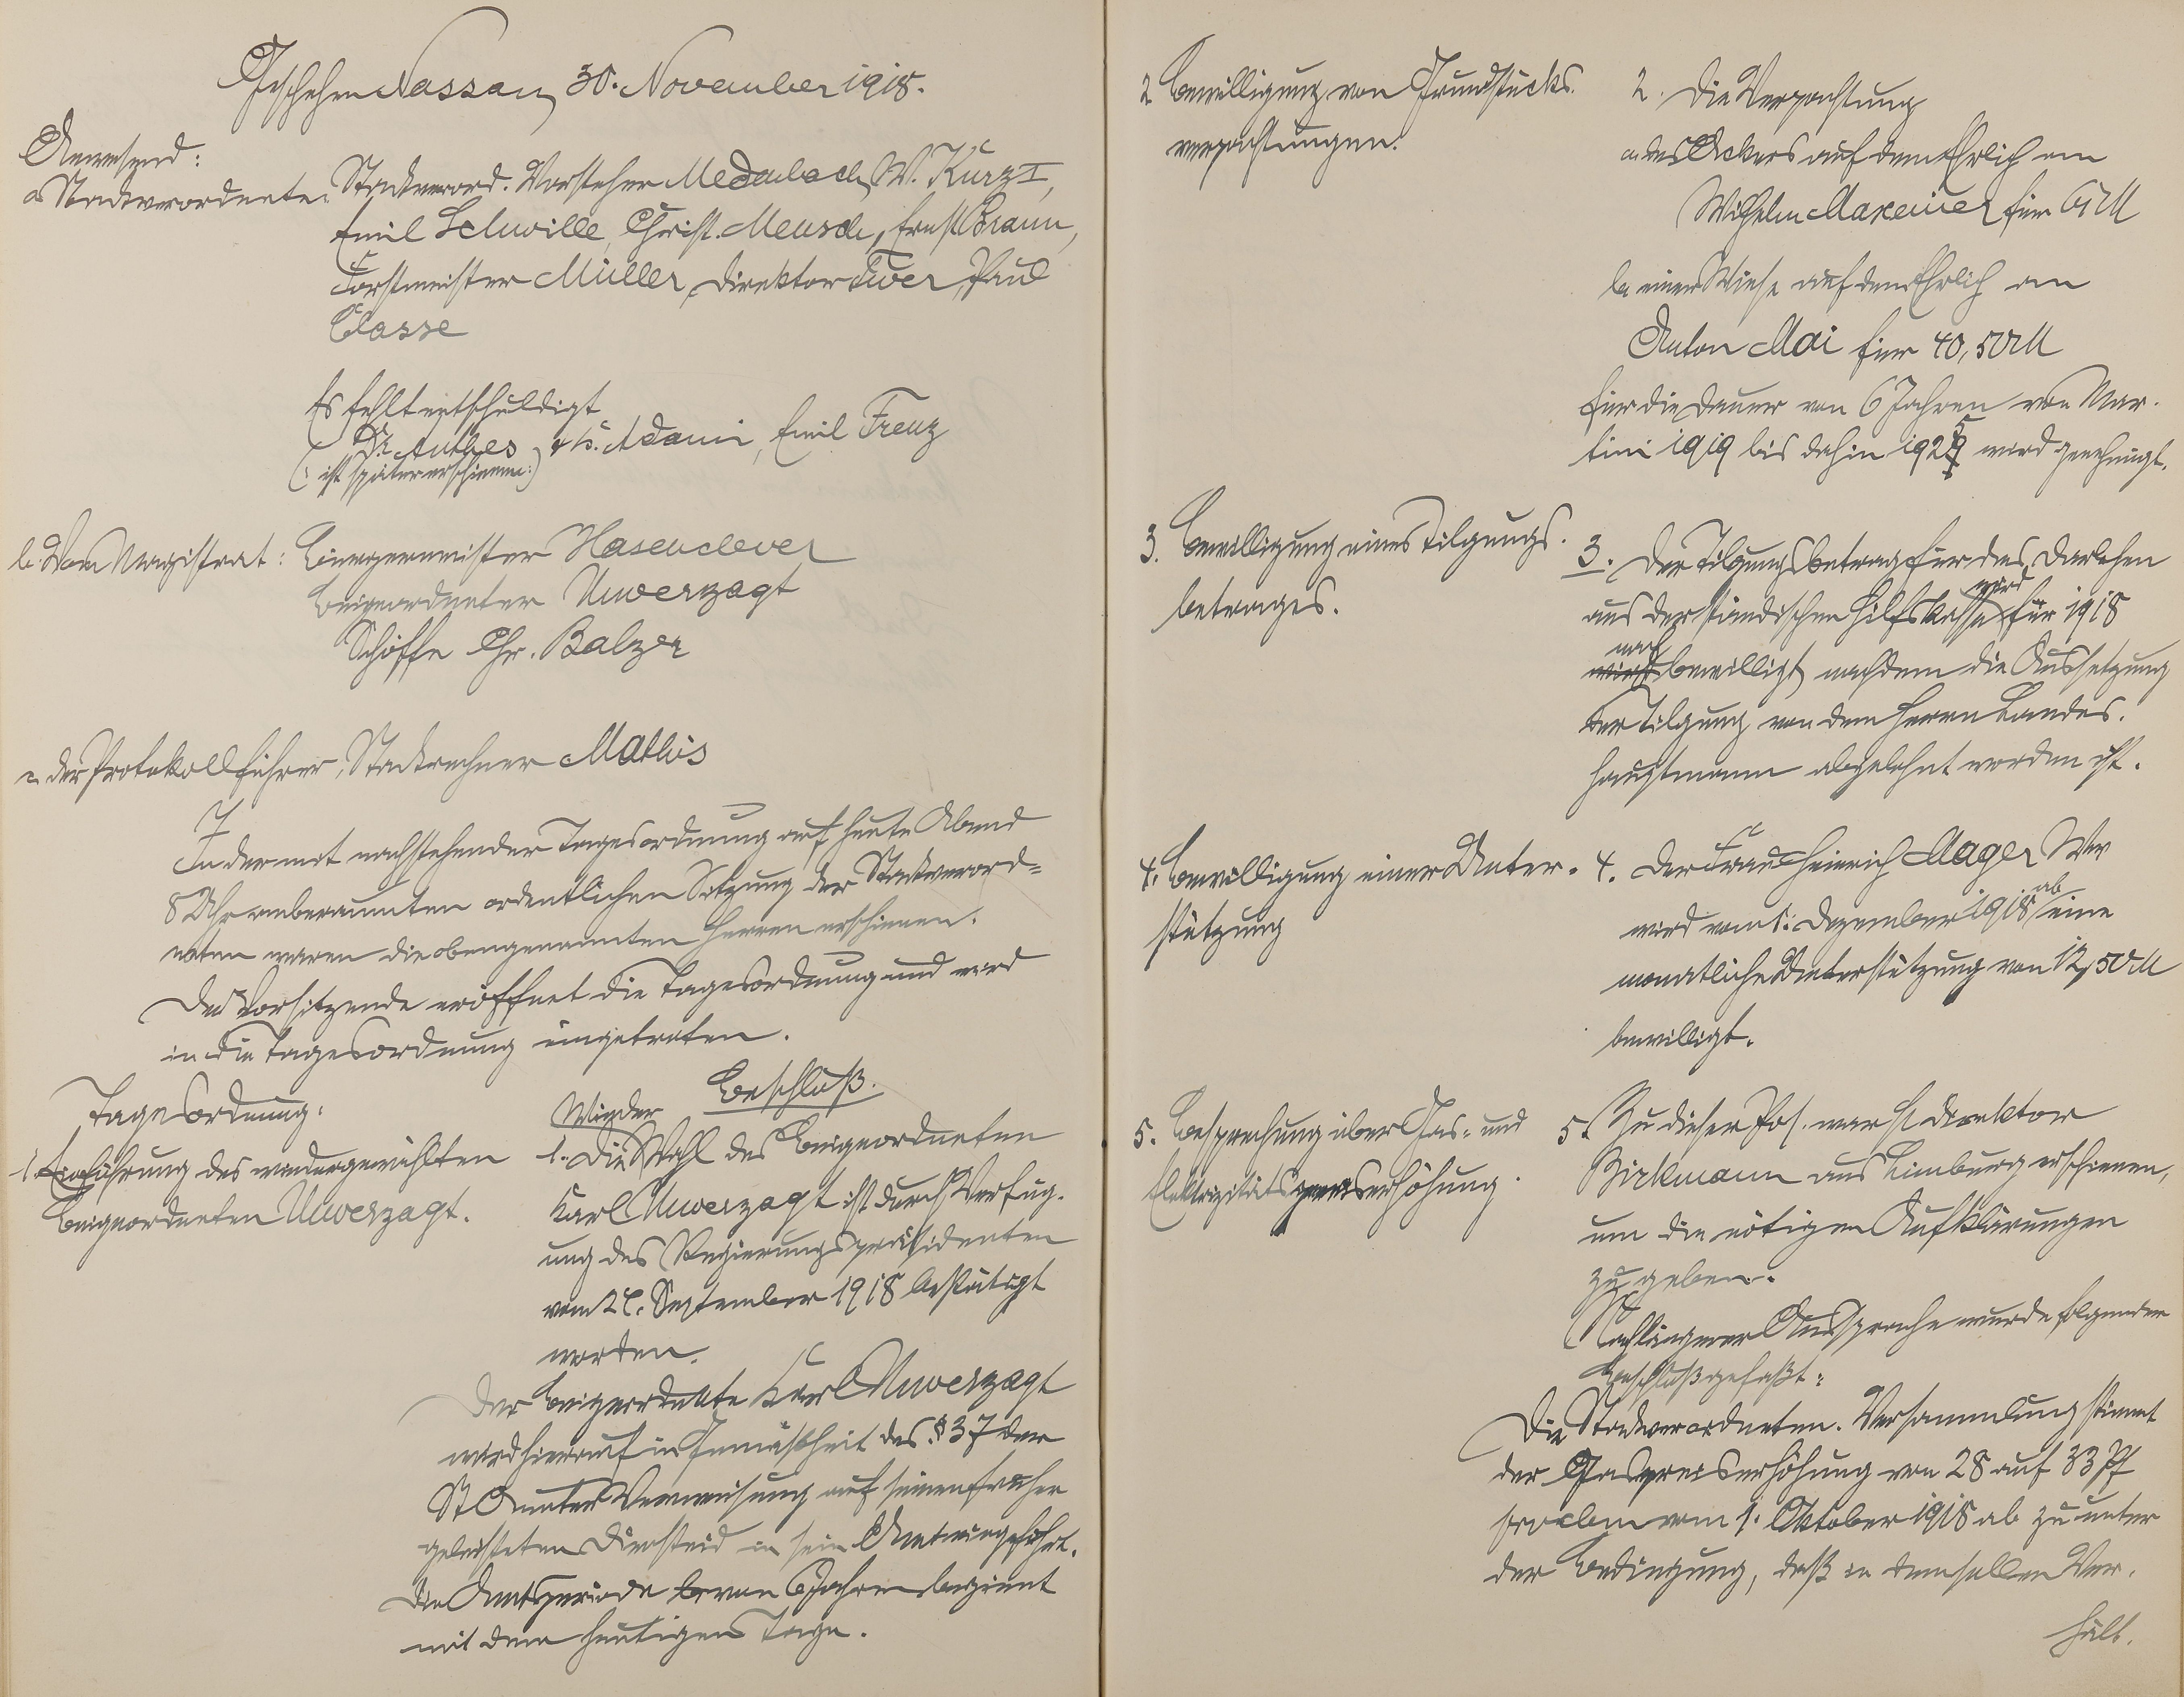 Geschehen Nassau, 30. November 1918.
Anwesend:
a. Stadtverordnete: Stadtverord. Vorsteher Medenbach, W. Kurz I,
Emil Schwille, Christ. Mensch, Ernst Braun,
Forstmeister Müller, Direktor Twer, Paul
Classe
Es fehlt entschuldigt
Dr. Anthes, K. Adami, Emil Frenz
(: ist später erschienen:)
b. Vom Magistrat: Bürgermeister Hasenclever
Beigeordneter Unverzagt
Schöffe Chr. Balzer
c. der Protokollführer, Stadtrechner Mathis
In der mit nachstehender Tagesordnung auf heute Abend
8 Uhr anberaumten ordentlichen Sitzung der Stadtverord=
neten waren die obengenannten Herren erschienen.
Der Vorsitzende eröffnet die Tagesordnung und wird
in die Tagesordnung eingetreten.
Tagesordnung:
1. Einführung des wiedergewählten
Beigeordneten Unverzagt.
Beschluß.
Wieder
1. Die Wahl des Beigeordneten
Karl Unverzagt ist durch Verfüg-
ung des Regierungspräsidenten
vom 24. September 1918 bestätigt
worden.
Der Beigeordnete Karl Unverzagt
wird hierauf in Gemäßheit des § 37 der
St O unter Verweisung auf seinen früher
geleisteten Diensteid in sein Amt eingeführt.
Die Amtsperiode von 6 Jahren beginnt
mit dem heutigen Tage.
2. Bewilligung von Grundstücks-
verpachtungen.
2. Die Verpachtung
a. des Ackers auf dem Ehrlich an
Wilhelm Maxeiner für 61 M
b. einer Wiese auf dem Ehrlich an
Anton Mai für 40,50 M
für die Dauer von 6 Jahren von Mar-
tini 1919 bis dahin 1925 wird genehmigt.
3. Bewilligung eines Tilgungs-
betrages.
3. Der Tilgungsbetrag für das Darlehen
aus der ständischen Hilfskasse wird für 1918
nach bewilligt, nachdem die Aussetzung
der Tilgung von dem Herrn Landes-
hauptmann abgelehnt worden ist.
4. Bewilligung einer Unter-
stützung
4. Der Frau Heinrich Mager Ww
wird vom 1. Dezember 1918 ab eine
monatliche Unterstützung von 12,50 M
bewilligt.
5. Besprechung über Gas- und
Elektrizitätspreiserhöhung.
5. Zu dieser Pos. war H. Direktor
Birkmann aus Limburg erschienen,
um die nötigen Aufklärungen
zu geben.
Nach längerer Aussprache wurde folgender
Beschluß gefaßt:
Die Stadtverordneten-Versammlung stimmt
der Gaspreiserhöhung von 28 auf 33 Pf
pro cbm vom 1. Oktober 1918 ab zu unter
der Bedingung, daß in demselben Ver-
hält.